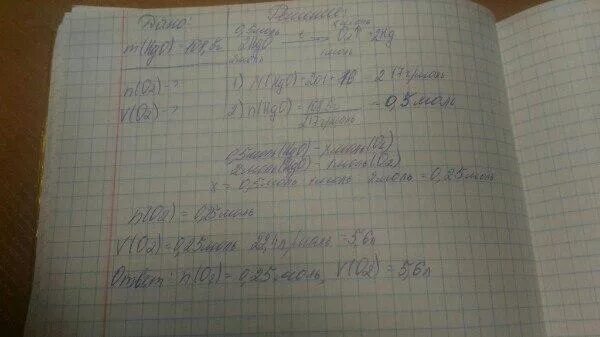 Дано: Решение:
0,5моль xмоль
m(HgO)=108,5г 2HgO t→ O2↑ + 2Hg
2моль 1моль
n(O2) - ? 1) M(HgO)=201+16 = 217г/моль
V(O2) - ? 2) n(HgO)= 108,5г / 217г/моль = 0,5моль
0,5моль(HgO) - xмоль(O2)
2моль(HgO) - 1моль(O2)
x = 0,5моль 1моль 2моль = 0,25моль
n(O2) = 0,25моль
V(O2)=0,25моль 22,4л/моль =5,6л
Ответ: n(O2)= 0,25моль, V(O2) = 5,6л